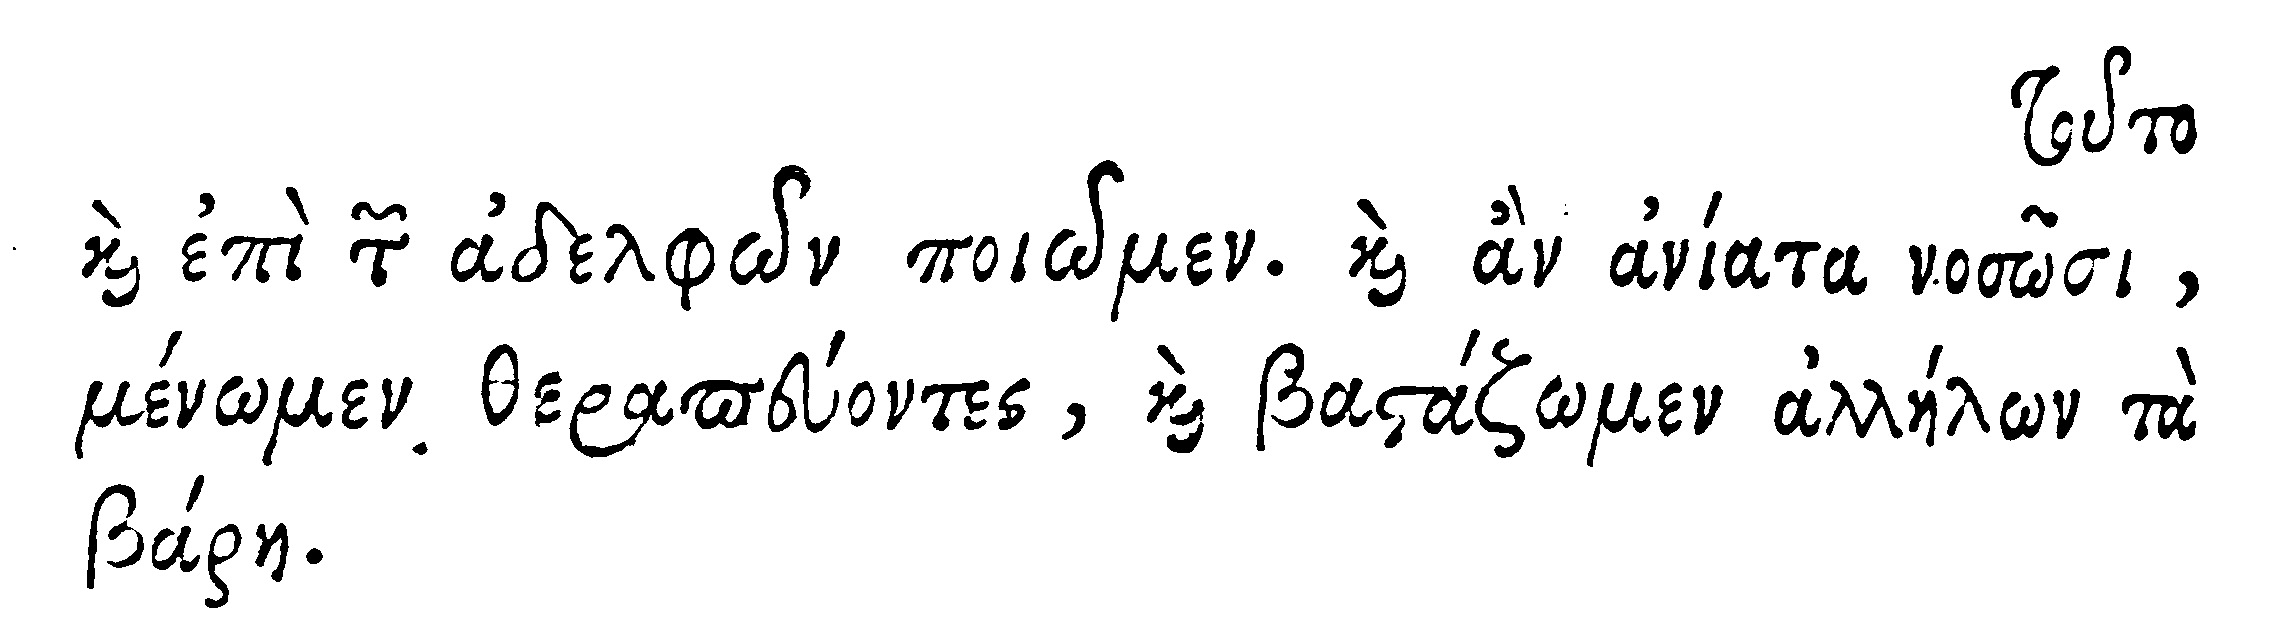 τοῦτο
καὶ ἐπὶ τῶν ἀδελφῶν ποιῶμεν. καὶ ἂν ἀνίατα νοσῶσι,
μένωμεν θεραπεύοντες, καὶ βαστάζωμεν ἀλλήλων τὰ
βάρη.